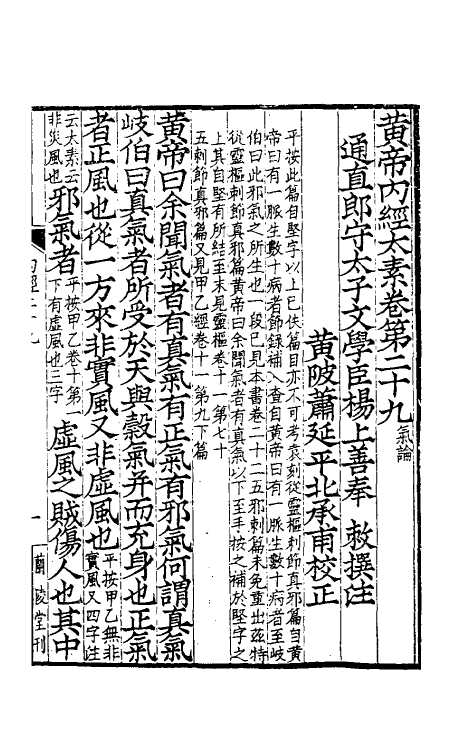 黃帝內經太素卷第二十九氣論
通直郎守太子文學臣楊上善奉 敕撰注
黃陂蕭延平北承甫校正
平按此篇自堅字以上已佚篇目亦不可考袁刻從靈樞刺節真邪篇自黃
帝曰有一脈生數十病者節錄補入查自黃帝曰有一脈生數十病者至岐
伯曰此邪氣之所生也一段已見本書卷二十二五邪刺篇未免重出茲特
從靈樞刺節真邪篇黃帝曰余聞氣者有真氣以下至手按之補於堅字之
上其自堅有所結至末見靈樞卷十一第七十
五刺節真邪篇又見甲乙經卷十一第九下篇
黃帝曰余聞氣者有真氣有正氣有邪氣何謂真氣
岐伯曰真氣者所受於天與穀氣并而充身也正氣
者正風也從一方來非實風又非虛風也平按甲乙無非實風又四字注
云太素云非災風也邪氣者平按甲乙卷十第一下有虛風也三字虛風之賊傷人也其中
內經二十九
一
蘭陵堂刊